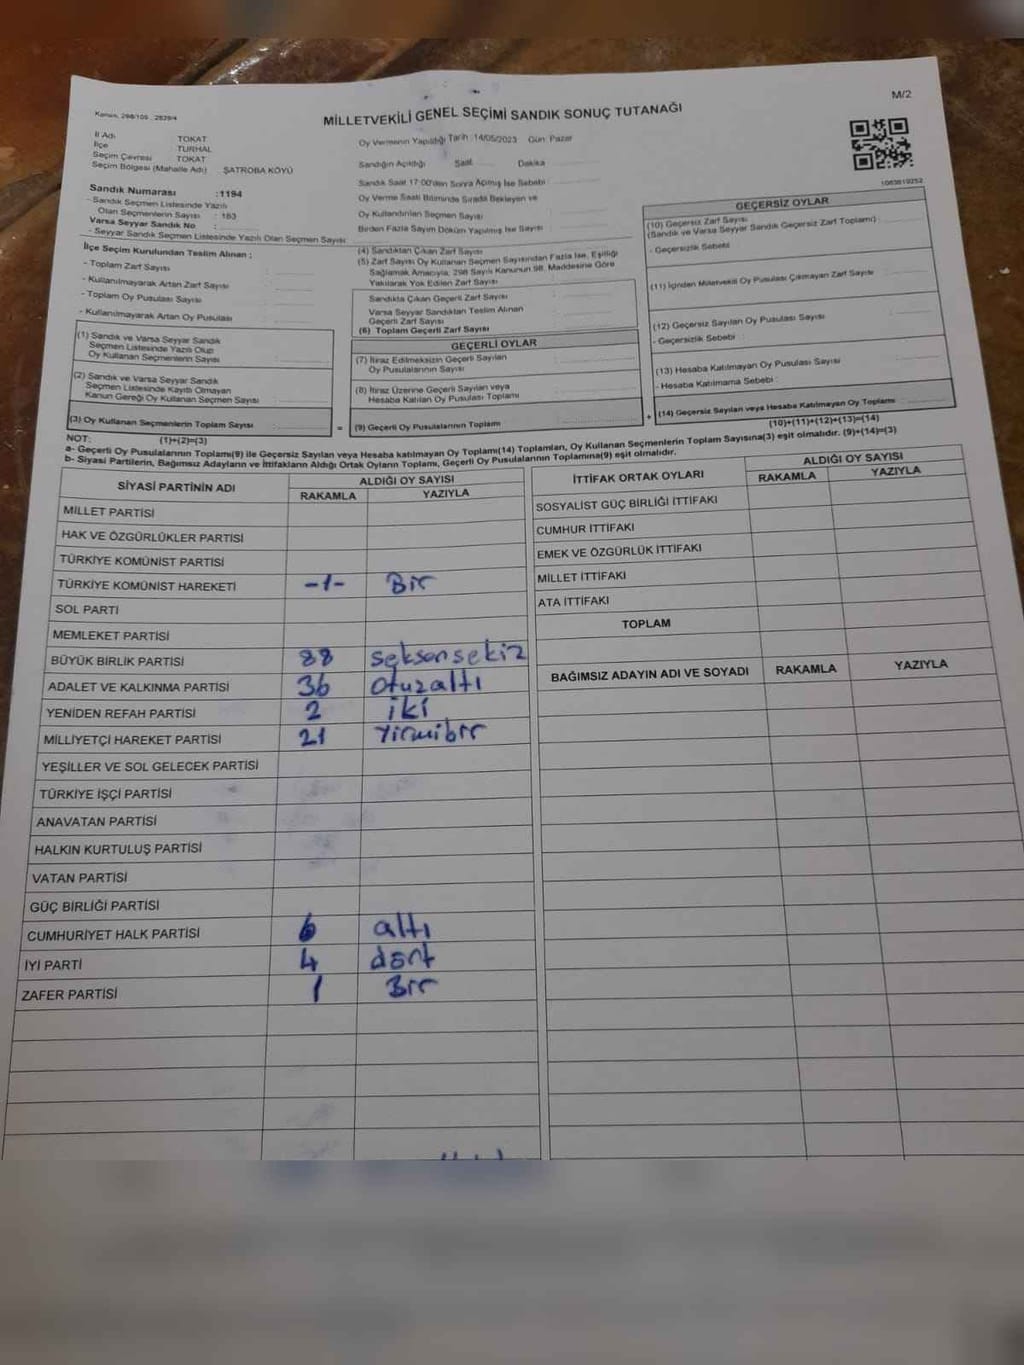 M/2
Kanun, 298/105 , 2839/4
MİLLETVEKİLİ GENEL SEÇİMİ SANDIK SONUÇ TUTANAĞI
İl Adı TOKAT
İlçe TURHAL
Seçim Çevresi TOKAT
Seçim Bölgesi (Mahalle Adı) ŞATROBA KÖYÜ
Sandık Numarası :1194
- Sandık Seçmen Listesinde Yazılı
Olan Seçmenlerin Sayısı : 163
Varsa Seyyar Sandık No :
- Seyyar Sandık Seçmen Listesinde Yazılı Olan Seçmen Sayısı:
Oy Vermenin Yapıldığı Tarih :14/05/2023 Gün: Pazar
Sandığın Açıldığı Saat Dakika
Sandık Saat 17:00'den Sonra Açılmış İse Sebebi :
Oy Verme Saati Bitiminde Sırada Bekleyen ve
Oy Kullandırılan Seçmen Sayısı
Birden Fazla Sayım Döküm Yapılmış İse Sayısı :
İlçe Seçim Kurulundan Teslim Alınan ;
- Toplam Zarf Sayısı
- Kullanılmayarak Artan Zarf Sayısı
- Toplam Oy Pusulası Sayısı
- Kullanılmayarak Artan Oy Pusulası
(1) Sandık ve Varsa Seyyar Sandık
Seçmen Listesinde Yazılı Olup
Oy Kullanan Seçmenlerin Sayısı
(2) Sandık ve Varsa Seyyar Sandık
Seçmen Listesinde Kayıtlı Olmayan
Kanun Gereği Oy Kullanan Seçmen Sayısı
(3) Oy Kullanan Seçmenlerin Toplam Sayısı
(4) Sandıktan Çıkan Zarf Sayısı
(5) Zarf Sayısı Oy Kullanan Seçmen Sayısından Fazla İse, Eşitliği
Sağlamak Amacıyla, 298 Sayılı Kanunun 98. Maddesine Göre
Yakılarak Yok Edilen Zarf Sayısı
Sandıkta Çıkan Geçerli Zarf Sayısı
Varsa Seyyar Sandıktan Teslim Alınan
Geçerli Zarf Sayısı
(6) Toplam Geçerli Zarf Sayısı
GEÇERLİ OYLAR
(7) İtiraz Edilmeksizin Geçerli Sayılan
Oy Pusulalarının Sayısı
(8) İtiraz Üzerine Geçerli Sayılan veya
Hesaba Katılan Oy Pusulası Toplamı
= (9) Geçerli Oy Pusulalarının Toplamı
GEÇERSİZ OYLAR
(10) Geçersiz Zarf Sayısı
(Sandık ve Varsa Seyyar Sandık Geçersiz Zarf Toplamı) :
- Geçersizlik Sebebi
(11) İçinden Milletvekili Oy Pusulası Çıkmayan Zarf Sayısı
(12) Geçersiz Sayılan Oy Pusulası Sayısı
- Geçersizlik Sebebi :
(13) Hesaba Katılmayan Oy Pusulası Sayısı
- Hesaba Katılmama Sebebi :
+ (14) Geçersiz Sayılan veya Hesaba Katılmayan Oy Toplamı
(10)+(11)+(12)+(13)=(14)
NOT: (1)+(2)=(3)
a- Geçerli Oy Pusulalarının Toplamı(9) ile Geçersiz Sayılan veya Hesaba katılmayan Oy Toplamı(14) Toplamları, Oy Kullanan Seçmenlerin Toplam Sayısına(3) eşit olmalıdır. (9)+(14)=(3)
b- Siyasi Partilerin, Bağımsız Adayların ve İttifakların Aldığı Ortak Oyların Toplamı, Geçerli Oy Pusulalarının Toplamına(9) eşit olmalıdır.
SİYASİ PARTİNİN ADI ALDIĞI OY SAYISI
RAKAMLA YAZIYLA
MİLLET PARTİSİ
HAK VE ÖZGÜRLÜKLER PARTİSİ
TÜRKİYE KOMÜNİST PARTİSİ
TÜRKİYE KOMÜNİST HAREKETİ -1- Bir
SOL PARTİ
MEMLEKET PARTİSİ
BÜYÜK BİRLİK PARTİSİ 88 seksensekiz
ADALET VE KALKINMA PARTİSİ 36 otuzaltı
YENİDEN REFAH PARTİSİ 2 iki
MİLLİYETÇİ HAREKET PARTİSİ 21 Yirmibir
YEŞİLLER VE SOL GELECEK PARTİSİ
TÜRKİYE İŞÇİ PARTİSİ
ANAVATAN PARTİSİ
HALKIN KURTULUŞ PARTİSİ
VATAN PARTİSİ
GÜÇ BİRLİĞİ PARTİSİ
CUMHURİYET HALK PARTİSİ 6 altı
İYİ PARTİ 4 dört
ZAFER PARTİSİ 1 Bir
İTTİFAK ORTAK OYLARI ALDIĞI OY SAYISI
RAKAMLA YAZIYLA
SOSYALİST GÜÇ BİRLİĞİ İTTİFAKI
CUMHUR İTTİFAKI
EMEK VE ÖZGÜRLÜK İTTİFAKI
MİLLET İTTİFAKI
ATA İTTİFAKI
TOPLAM
BAĞIMSIZ ADAYIN ADI VE SOYADI RAKAMLA YAZIYLA